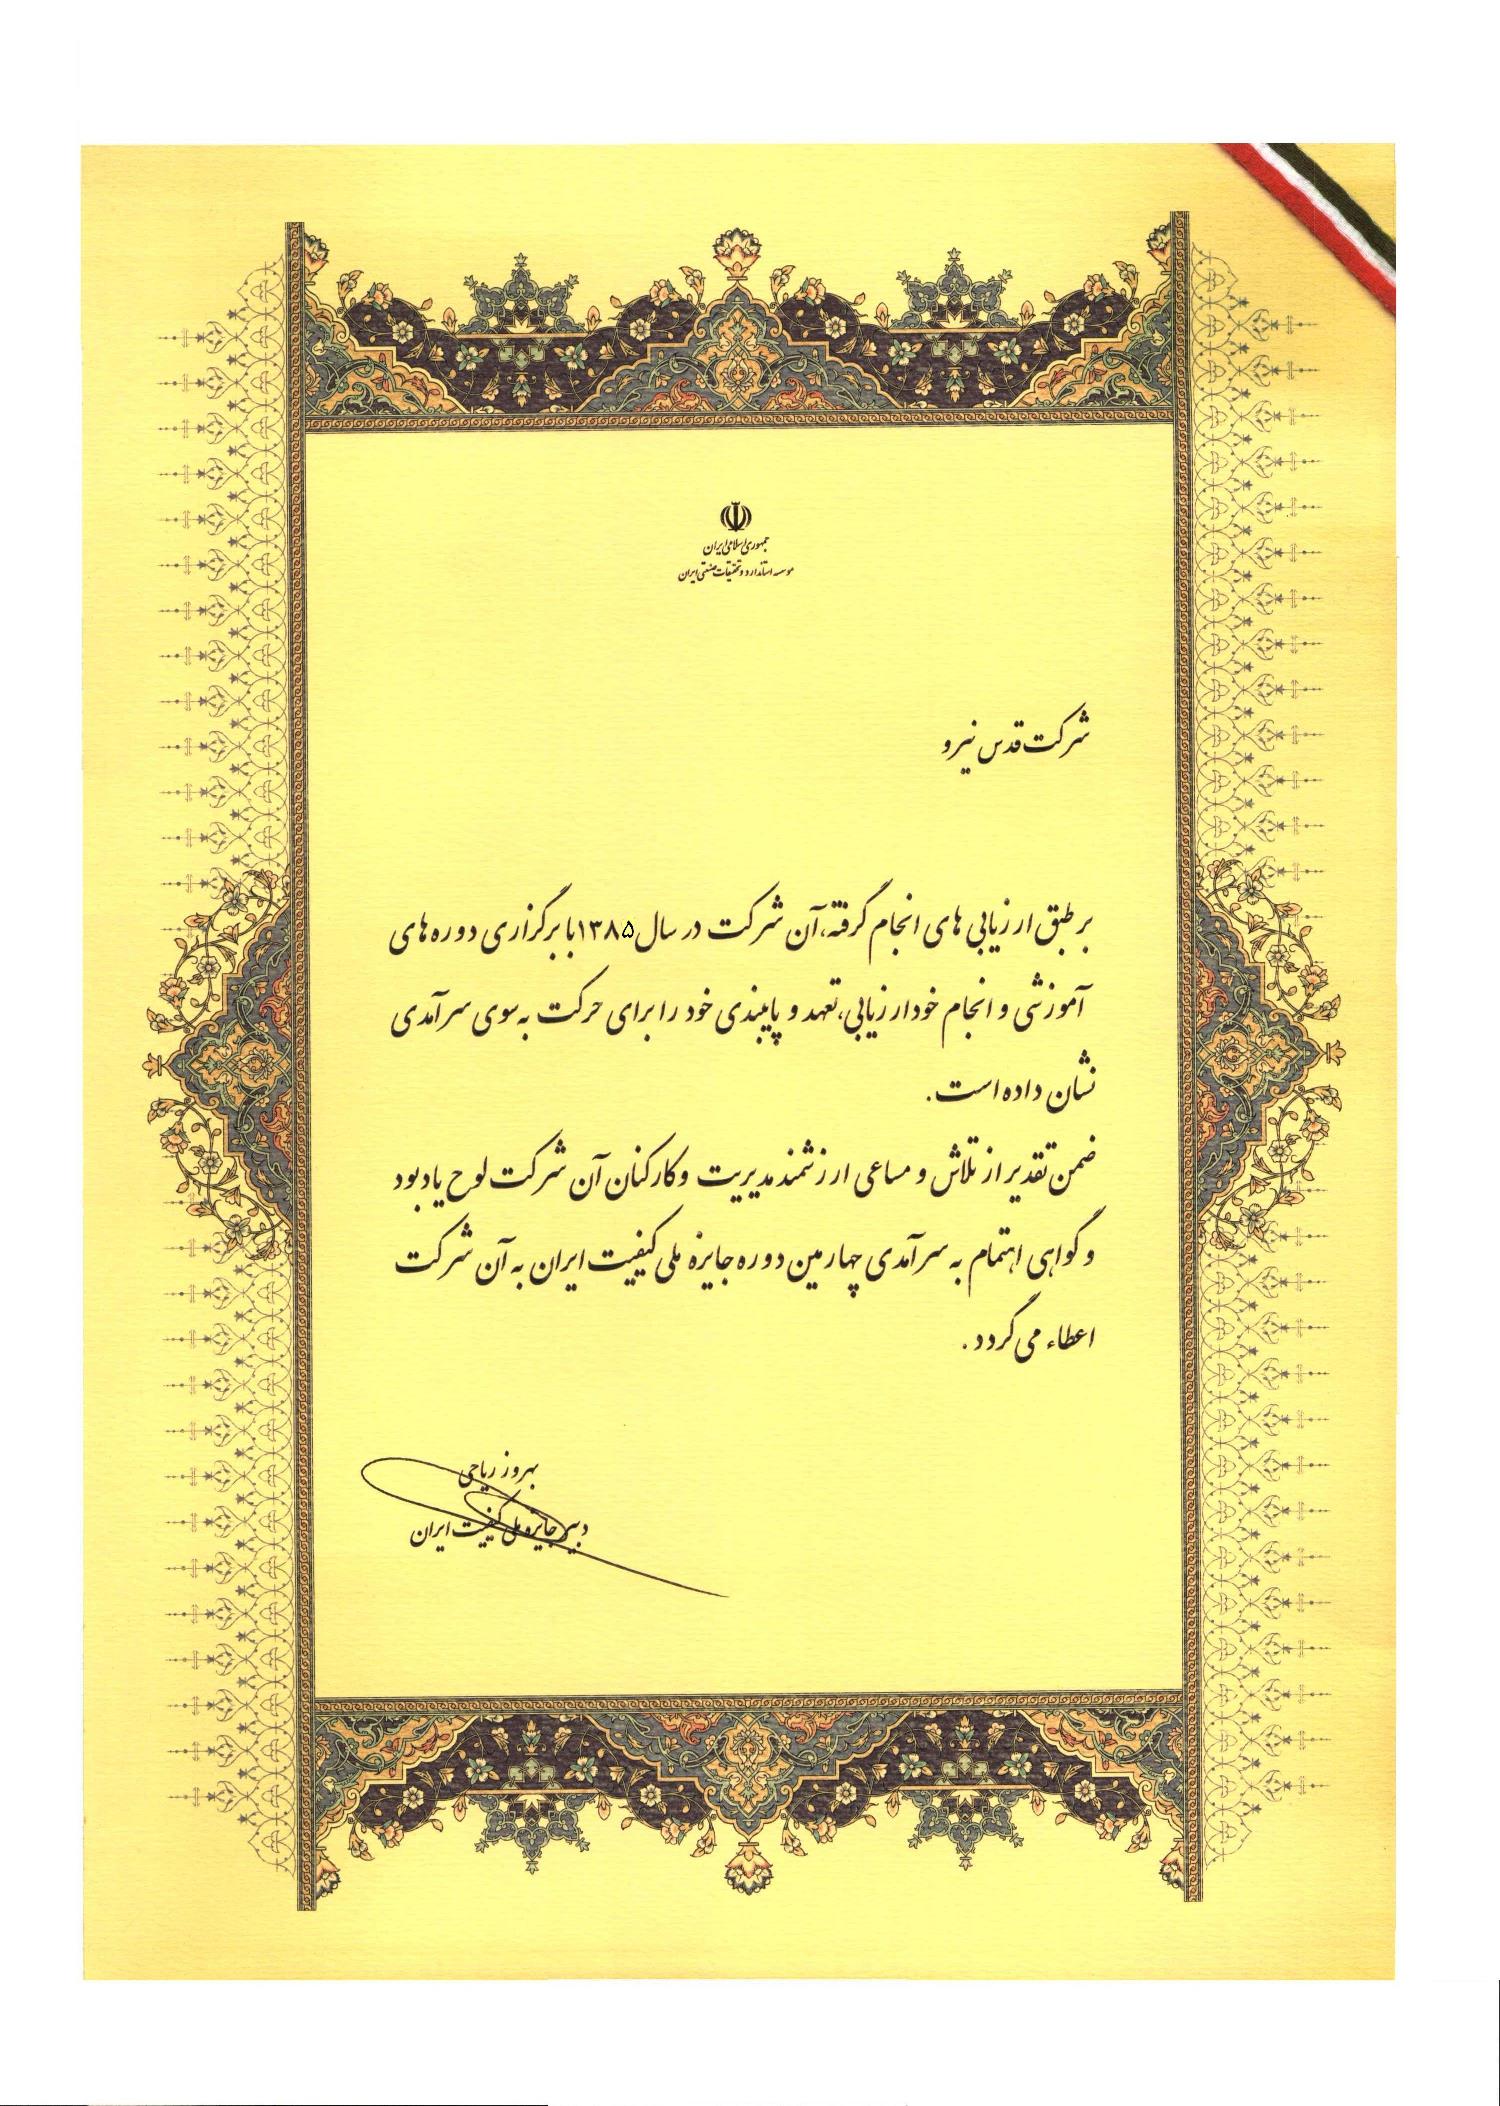 جمهوری اسلامی ایران
موسسه استاندارد و تحقیقات صنعتی ایران
شرکت قدس نیرو
بر طبق ارزیابی های انجام گرفته، آن شرکت در سال ۱۳۸۵ با برگزاری دوره های
آموزشی و انجام خودارزیابی، تعهد و پایبندی خود را برای حرکت به سوی سرآمدی
نشان داده است.
ضمن تقدیر از تلاش و مساعی ارزشمند مدیریت و کارکنان آن شرکت لوح یادبود
و گواهی اهتمام به سرآمدی چهارمین دوره جایزه ملی کیفیت ایران به آن شرکت
اعطاء می گردد.
بهروز ریاحی
دبیر جایزه ملی کیفیت ایران